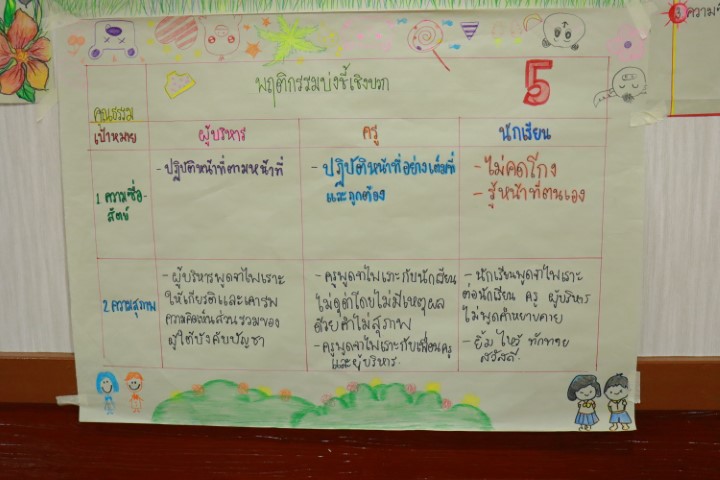 3 ความ
พฤติกรรมบ่งชี้เชิงบวก
5
คุณธรรม
เป้าหมาย
ผู้บริหาร
ครู
นักเรียน
1 ความซื่อ-
สัตย์
- ปฏิบัติหน้าที่ตามหน้าที่
- ปฏิบัติหน้าที่อย่างเต็มที่
และถูกต้อง
- ไม่คดโกง
- รู้หน้าที่ตนเอง
2 ความสุภาพ
- ผู้บริหารพูดจาไพเราะ
ให้เกียรติและเคารพ
ความคิดเห็นส่วนรวมของ
ผู้ใต้บังคับบัญชา
- ครูพูดจาไพเราะกับนักเรียน
ไม่ดุด่าโดยไม่มีเหตุผล
ด้วยคำไม่สุภาพ
- ครูพูดจาไพเราะกับเพื่อนครู
และผู้บริหาร.
- นักเรียนพูดจาไพเราะ
ต่อนักเรียน ครู ผู้บริหาร
ไม่พูดคำหยาบคาย
- ยิ้ม ไหว้ ทักทาย
สวัสดี.